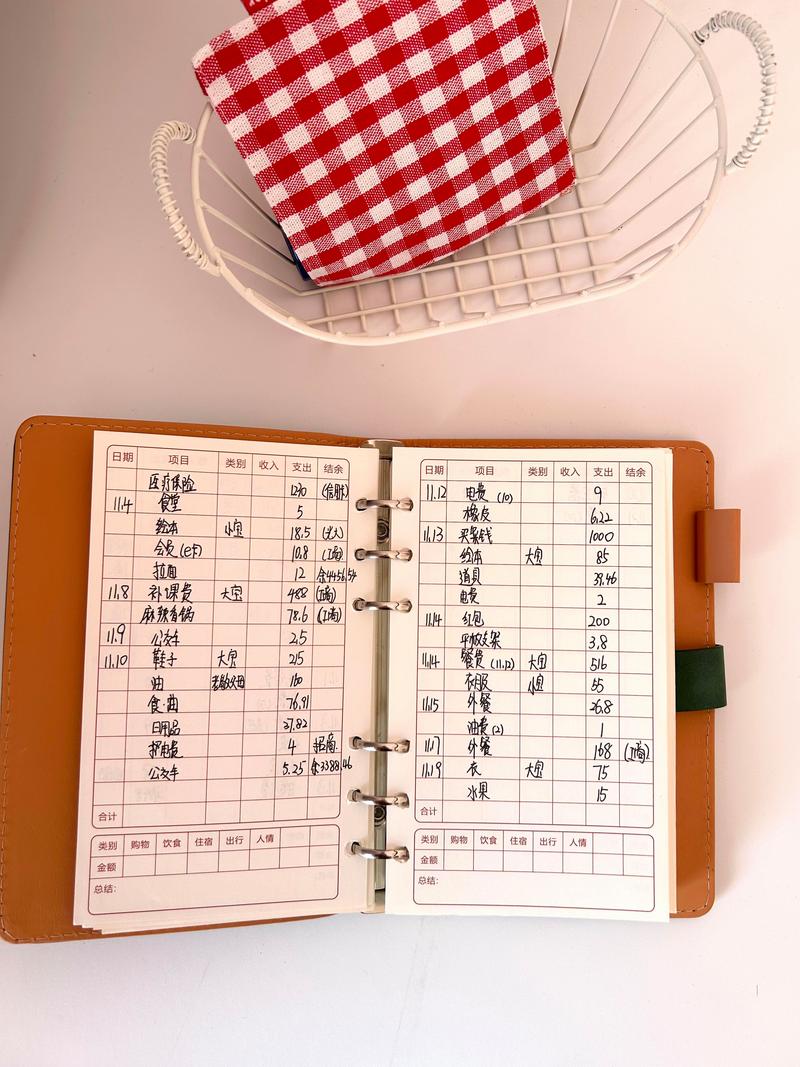 日期 项目 类别 收入 支出 结余
医疗保险 1230 (信用卡)
11.4 食堂 5
绘本 小宝 18.5 (光大)
会员(e卡) 10.8 (工商)
拉面 12 余4456.54
11.8 补课费 大宝 488 (工商)
麻辣香锅 78.6 (工商)
11.9 公交车 2.5
11.10 鞋子 大宝 215
油 160
食·曲 76.91
日用品 27.82
护电费 4 招商.
公交车 5.25 余3388.46
合计
类别 购物 饮食 住宿 出行 人情
金额
总结：
日期 项目 类别 收入 支出 结余
11.12 电费(10) 9
橡皮 6.22
11.13 买菜钱 1000
绘本 大宝 85
道具 39.46
电费 2
11.14 红包 200
平板支架 3.8
11.14 餐费(11.12) 大宝 516
衣服 小宝 55
11.15 外餐 26.8
油费(2) 1
11.17 外餐 168 (工商)
11.19 衣 大宝 75
水果 15
合计
类别 购物 饮食 住宿 出行 人情
金额
总结：